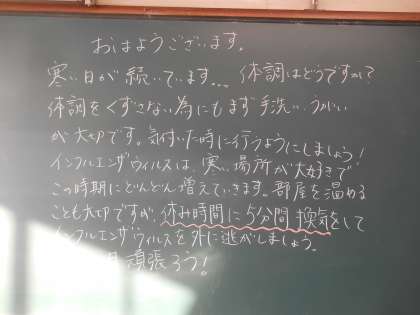 おはようございます。
寒い日が続いています... 体調はどうですか?
体調をくずさない為にもまず手洗い、うがい
が大切です。気付いた時に行うようにしましょう!
インフルエンザウィルスは、寒い場所が大好きで
この時期にどんどん増えていきます。部屋を温める
ことも大切ですが、休み時間に5分間換気をして
インフルエンザウィルスを外に逃がしましょう。
頑張ろう!